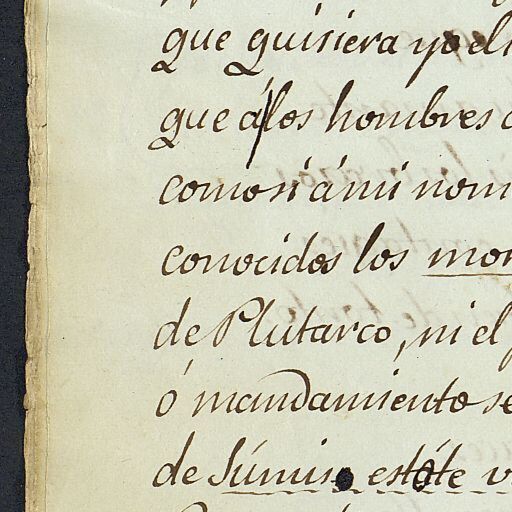 que quisiera yo el
que á los hombres
como si á mi nom
conocidos los mor
de Plutarco, ni el
ó mandamiento se
de Súmis estóte v